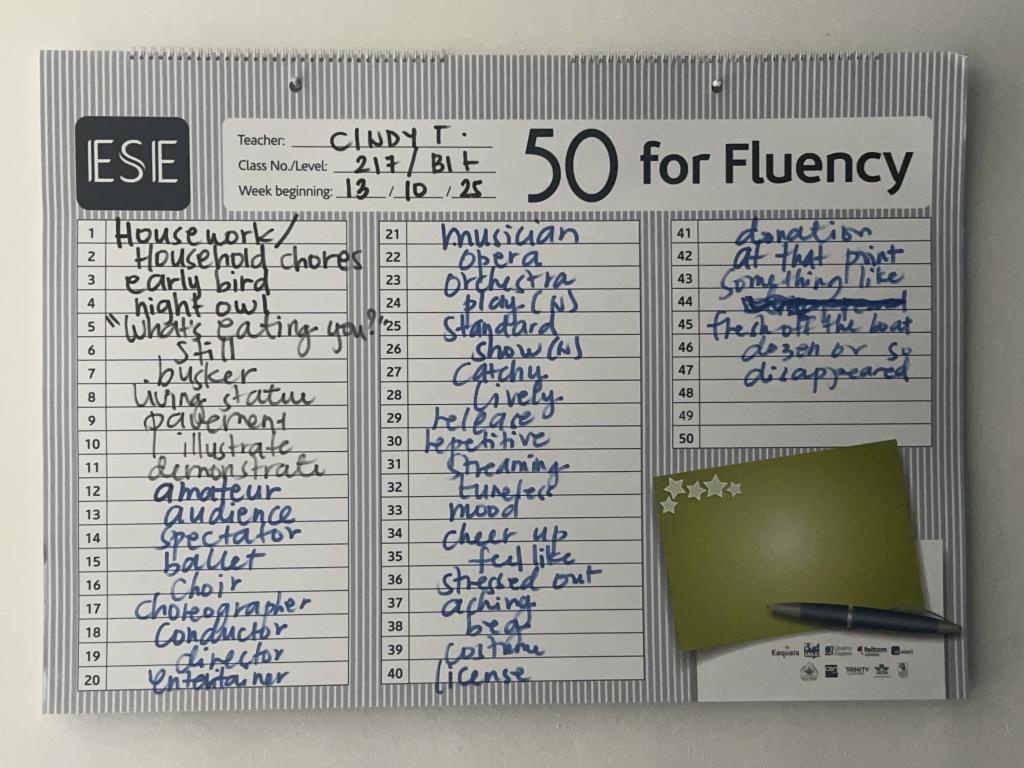 ESE
Teacher: CINDY T.
Class No./Level: 217/ B1+
Week beginning: 13 / 10 / 25
50 for Fluency
1 Housework/
2 Household chores
3 early bird
4 night owl
5 "What's eating you?"
6 still
7 busker
8 living statue
9 pavement
10 illustrate
11 demonstrate
12 amateur
13 audience
14 spectator
15 ballet
16 Choir
17 Choreographer
18 Conductor
19 director
20 entertainer
21 musician
22 opera
23 Orchestra
24 play (N)
25 Standard
26 Show (N)
27 Catchy
28 lively
29 release
30 repetitive
31 Streaming
32 tuneless
33 mood
34 cheer up
35 feel like
36 stressed out
37 aching
38 beg
39 costume
40 license
41 donation
42 at that point
43 something like
44
45 fresh off the boat
46 dozen or so
47 disappeared
48
49
50
Eaquals
Quality English
feltom
TRINITY